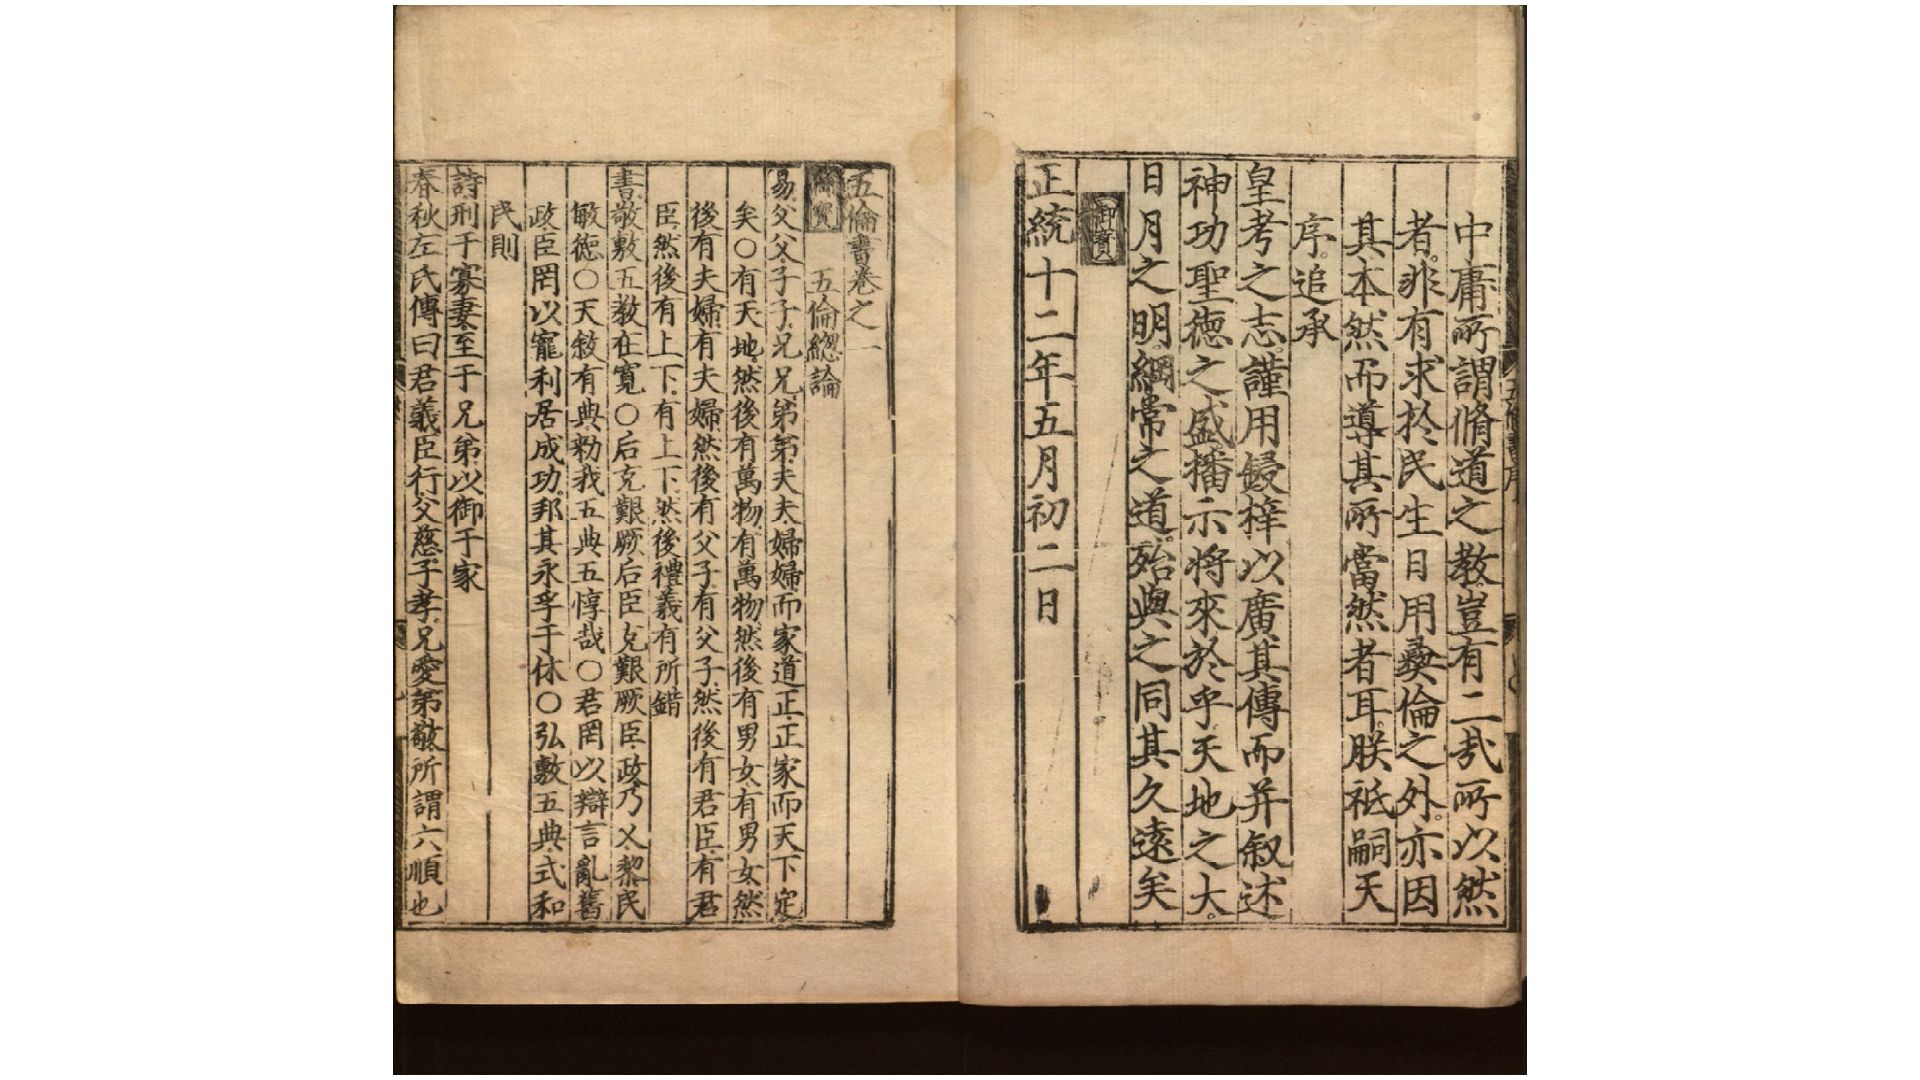 中庸所謂脩道之教豈有二哉所以然
者非有求於民生日用彝倫之外亦因
其本然而導其所當然者耳朕祗嗣天
序追承
皇考之志謹用鋟梓以廣其傳而并叙述
神功聖德之盛播示將來於乎天地之大
日月之明綱常之道殆與之同其久遠矣
御寶
正統十二年五月初二日
五倫書卷之一
五倫緫論
易父父子子兄兄弟弟夫夫婦婦而家道正正家而天下定
矣○有天地然後有萬物有萬物然後有男女有男女然
後有夫婦有夫婦然後有父子有父子然後有君臣有君
臣然後有上下有上下然後禮義有所錯
書敬敷五教在寬○后克艱厥后臣克艱厥臣政乃乂黎民
敏德○天敘有典勑我五典五惇哉○君罔以辯言亂舊
政臣罔以寵利居成功邦其永孚于休○弘敷五典式和
民則
詩刑于寡妻至于兄弟以御于家
春秋左氏傳曰君義臣行父慈子孝兄愛弟敬所謂六順也